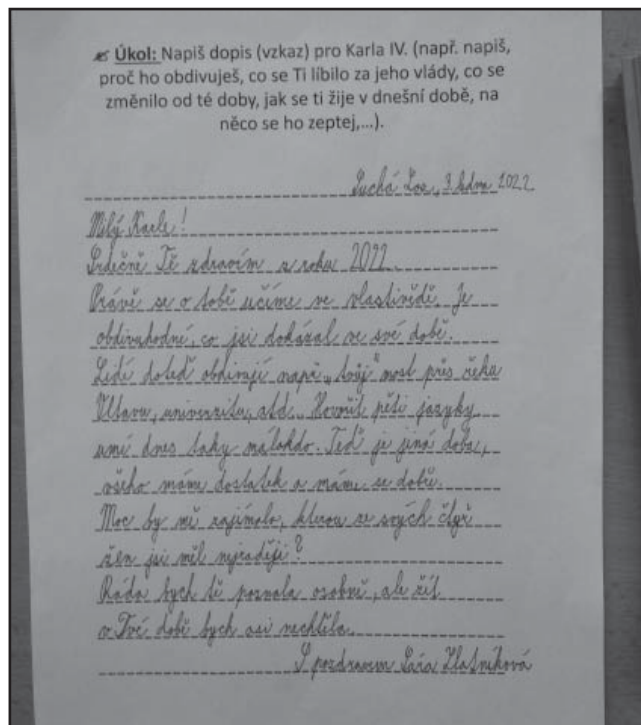 ✍ Úkol: Napiš dopis (vzkaz) pro Karla IV. (např. napiš,
proč ho obdivuješ, co se Ti líbilo za jeho vlády, co se
změnilo od té doby, jak se ti žije v dnešní době, na
něco se ho zeptej,...).
Suchá Loz, 3. ledna 2022
Milý Karle!
Srdečně Tě zdravím z roku 2022.
Právě se o tobě učíme ve vlastivědě. Je
obdivuhodné, co jsi dokázal ve své době.
Lidé doteď obdivují např. „tvůj“ most přes řeku
Vltavu, univerzitu, atd. Hovořit pěti jazyky
umí dnes taky málokdo. Teď je jiná doba,
všeho máme dostatek a máme se dobře.
Moc by mě zajímalo, kterou ze svých čtyř
žen jsi měl nejraději?
Ráda bych tě poznala osobně, ale žít
v Tvé době bych asi nechtěla.
S pozdravem Sára Zlatníková